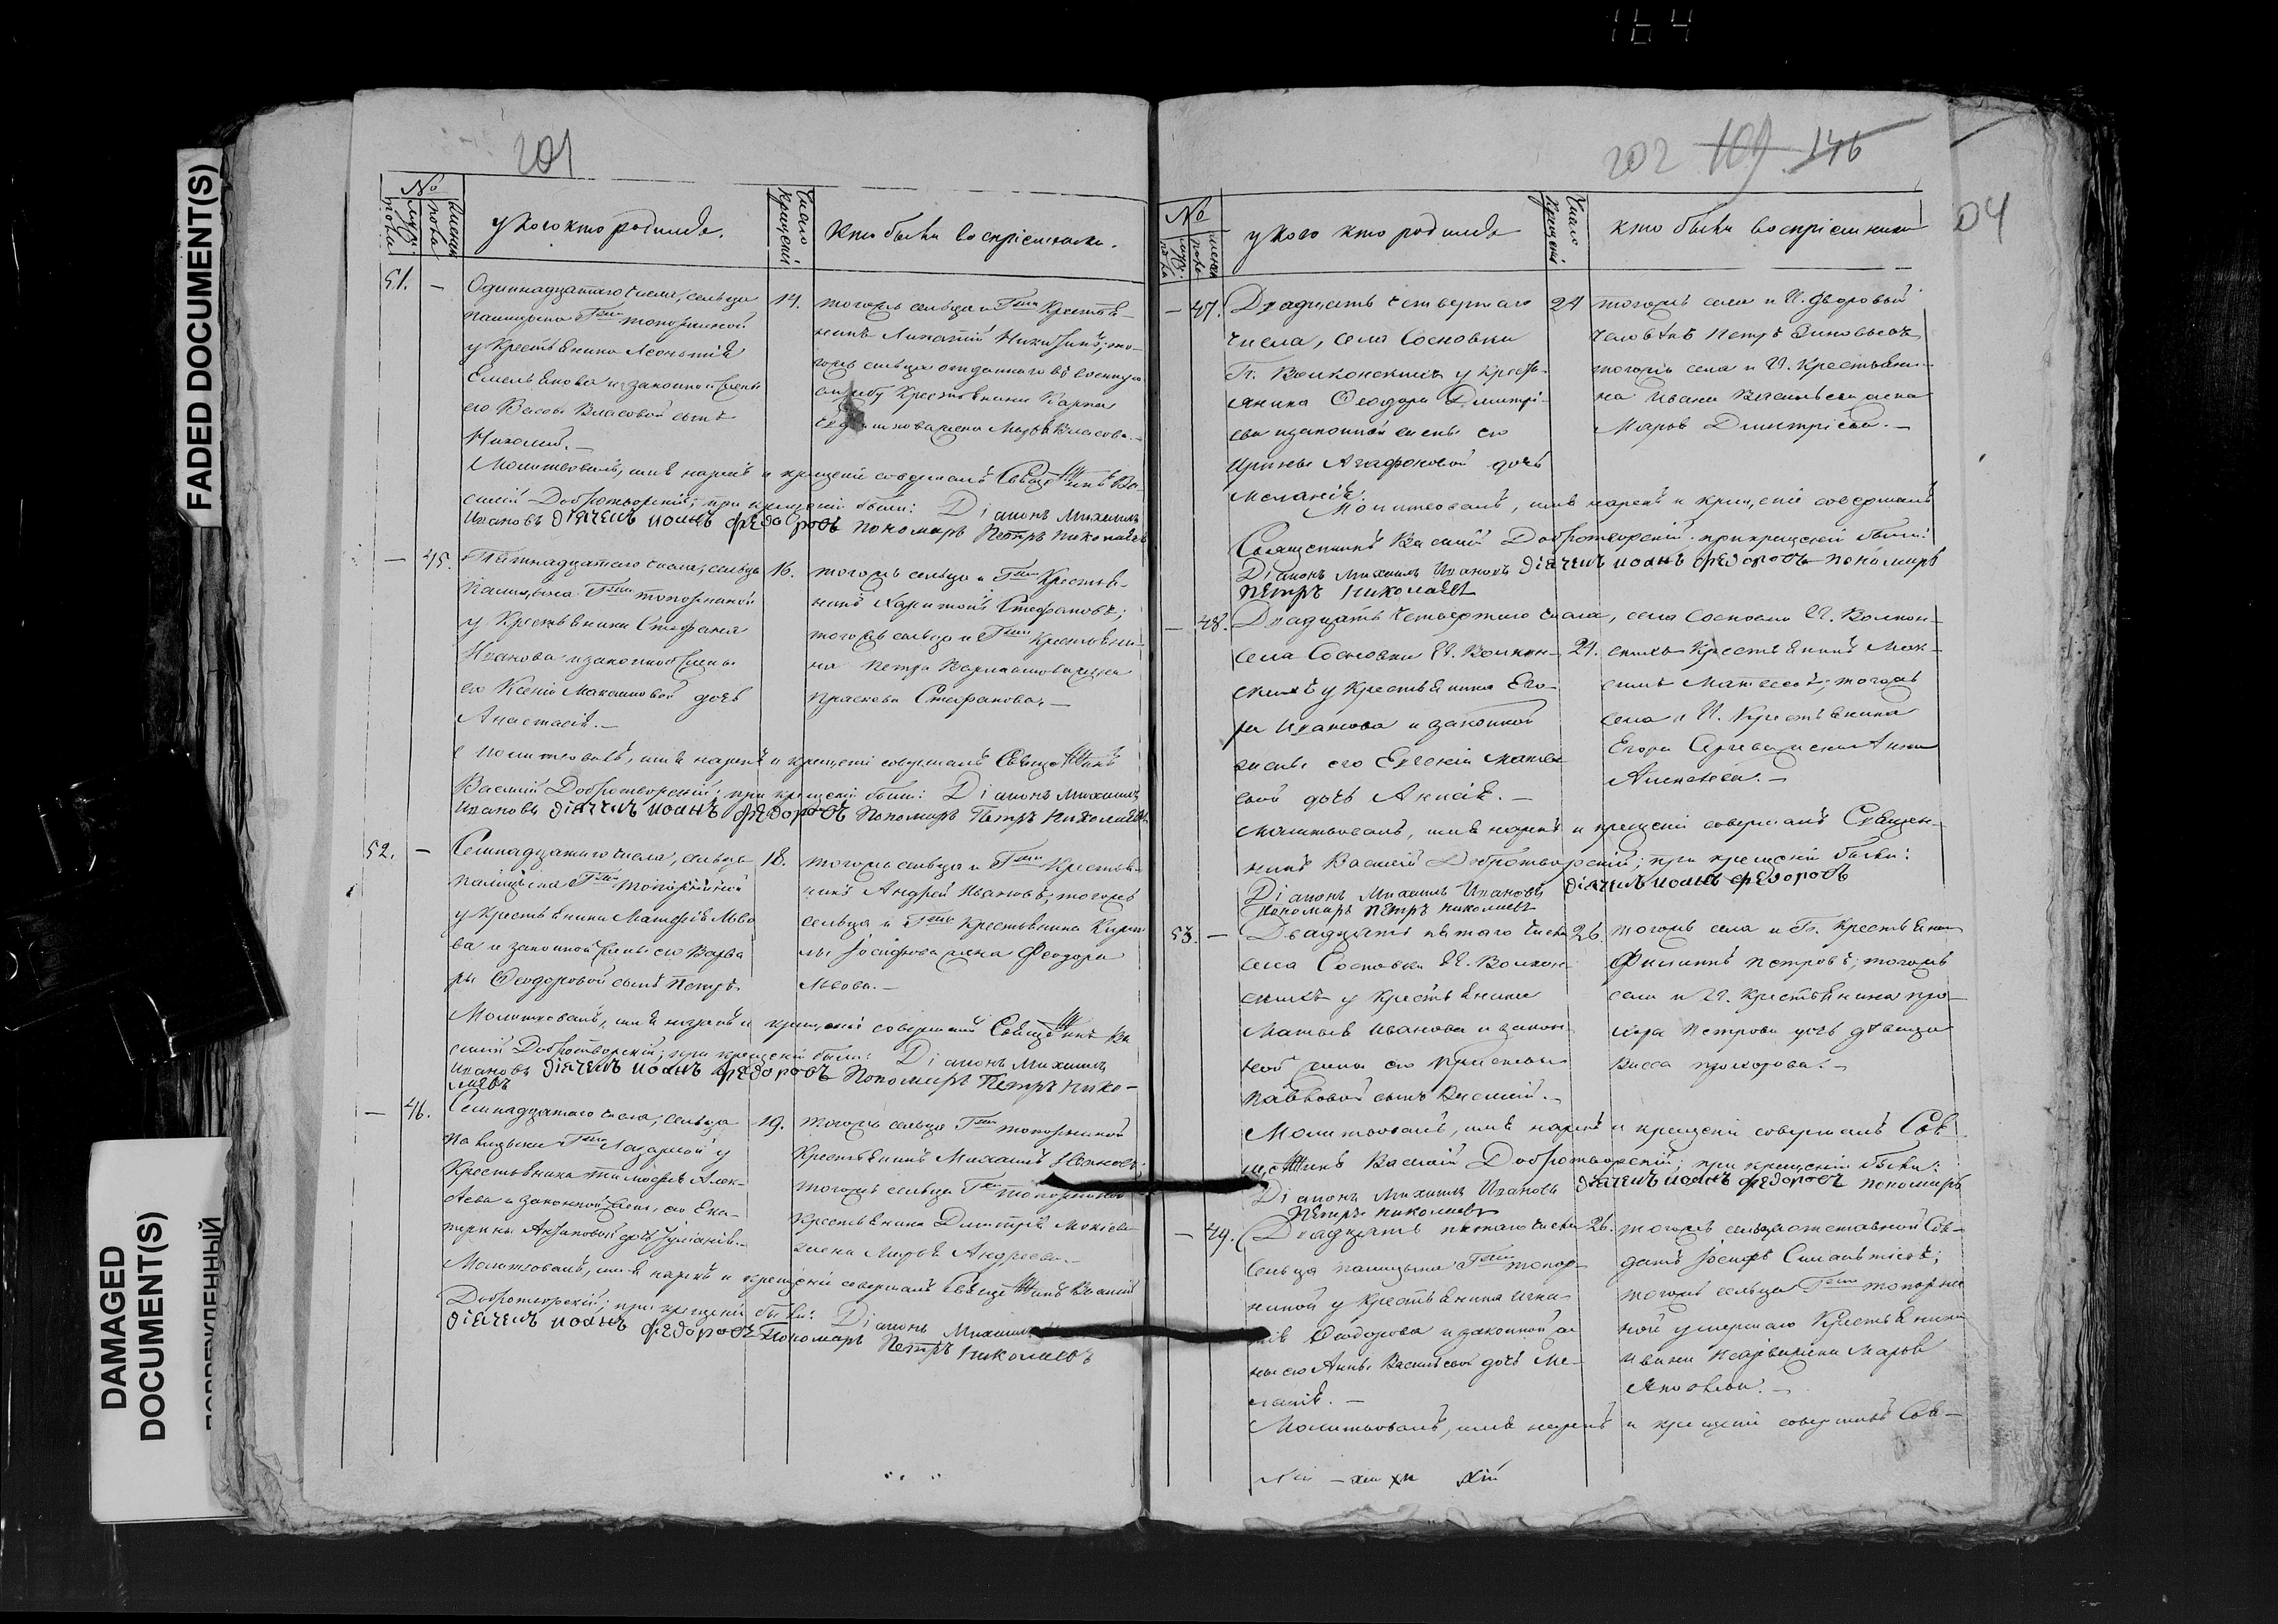 164
FADED DOCUMENT(S)
DAMAGED
DOCUMENT(S)
201
№
мужс. пола
женск. пола
у кого кто родился.
Число крещенія
кто были воспріемники.
51. — Одиннадцатаго числа, сельца
Гжи Топорниной
у Крестьянина Леонтія
Емельянова и законной жены
его Вассы Власовой сынъ
Николай. —
14. тогожъ сельца и Гжи Крестья-
нинъ Никитинъ; то-
гожъ сельца отданнаго въ военную
службу Крестьянина Карпа
жена Марѳа Власова. —
Молитвовалъ, имя нарекъ и крещеніе совершалъ Священникъ Ва-
силій Добротворскій; при крещеніи были: Діаконъ Михаилъ
Ивановъ діячекъ иоанъ федоровъ пономарь Петръ Николаевъ
— 45. Пятнадцатаго числа, сельца
Гжи Топорниной
у Крестьянина Стефана
Иванова и законной жены
его Ксеніи Максимовой дочь
Анастасія. —
16. тогожъ сельца и Гжи Крестья-
нинъ Харитонъ Стефановъ;
тогожъ сельца и Гжи Крестьяни-
на Петра жена
Праскева Стефанова. —
Молитвовалъ, имя нарекъ и крещеніе совершалъ Священникъ
Василій Добротворскій; при крещеніи были: Діаконъ Михаилъ
Ивановъ діячекъ иоанъ федоровъ Пономарь Петръ Николаевъ
52. — Семнадцатаго числа, сельца
Гжи Топорниной
у Крестьянина Матфія Льво
ва и законной жены его Варва
ры Ѳеодоровой сынъ Петръ.
18. тогожъ сельца и Гжи Крестья-
нинъ Андрей Ивановъ; тогожъ
сельца и Гжи Крестьянина Кири
лы Іосифова жена Ѳеодора
Львова. —
Молитвовалъ, имя нарекъ и крещеніе совершалъ Священникъ Ва
силій Добротворскій; при крещеніи были: Діаконъ Михаилъ
Ивановъ діячекъ иоанъ федоровъ Пономарь Петръ Нико-
лаевъ
— 46. Семнадцатаго числа, сельца
Гжи Лазаревой у
Крестьянина Тимофея Алек-
сѣева и законной жены, его Ека-
терины дочь Іуліанія. —
19. тогожъ сельца Гжи Топорниной
Крестьянинъ Михаилъ Ивановъ:
тогожъ сельца Гжи Топорниной
Крестьянина Димитрія
жена Марѳа Андреева. —
Молитвовалъ, имя нарекъ и крещеніе совершалъ Священникъ Василій
Добротворскій; при крещеніи были: Діаконъ Михаилъ
діячекъ иоанъ федоровъ Пономарь Петръ Николаевъ
202 109 146
04
№
мужс. пола
женск. пола
у кого кто родился
Число крещенія
кто были воспріемники
— 47. Двадцать четвертаго
числа, села Сосновки
Гг. Волконскихъ у Кресть-
янина Ѳеодора Димитрі-
ева и законной жены его
Ирины Агафоновой дочь
Меланія.
24 тогожъ села и Гг. дворовый
человѣкъ Петръ Зиновьевъ
тогожъ села и Гг. Крестьяни-
на Ивана Васильева жена
Марѳа Димитріева. —
Молитвовалъ, имя нарекъ и крещеніе совершалъ
Священникъ Василій Добротворскій. при крещеніи были:
Діаконъ Михаилъ Ивановъ діячекъ иоанъ федоровъ пономарь
Петръ Николаевъ
— 48. Двадцать четвертаго числа, села Сосновки Гг. Волкон-
села Сосновки Гг. Волкон-
скихъ у Крестьянина Его-
ра Иванова и законной
жены его Евгеніи Матве
евой дочь Анисія. —
24. скихъ Крестьянинъ Мак-
симъ Матвеевъ; тогожъ
села и Гг. Крестьянина
Егора Сергѣева жена Анна
Алексеева. —
Молитвовалъ, имя нарекъ и крещеніе совершалъ Священ-
никъ Василій Добротворскій; при крещеніи были:
Діаконъ Михаилъ Ивановъ діячекъ иоанъ федоровъ
Пономарь Петръ Николаевъ
53. — Двадцать пятаго числа
села Сосновки Гг. Волкон
скихъ у Крестьянина
Матвея Иванова и закон
ной жены его
Павловой сынъ Василій. —
26 тогожъ села и Гг. Крестьянинъ
Филиппъ Петровъ; тогожъ
села и Гг. Крестьянина Про-
хора Петрова дочь девица
Васса Прохорова. —
Молитвовалъ, имя нарекъ и крещеніе совершалъ Свя
щенникъ Василій Добротворскій; при крещеніи были:
Діаконъ Михаилъ Ивановъ діячекъ иоанъ федоровъ пономарь
Петръ Николаевъ
— 49. Двадцать пятаго числа
сельца Гжи Топор-
ниной у Крестьянина Игна-
тія Ѳеодорова и законной же
ны его Анны Васильевой дочь Ме-
ланія. —
26. тогожъ сельца отставной Сол-
датъ Іосифъ;
тогожъ сельца Гжи Топорни
ной умершаго Крестьянина
Ивана жена Марѳа
Яковлева. —
Молитвовалъ, имя нарекъ и крещеніе совершалъ Свя-